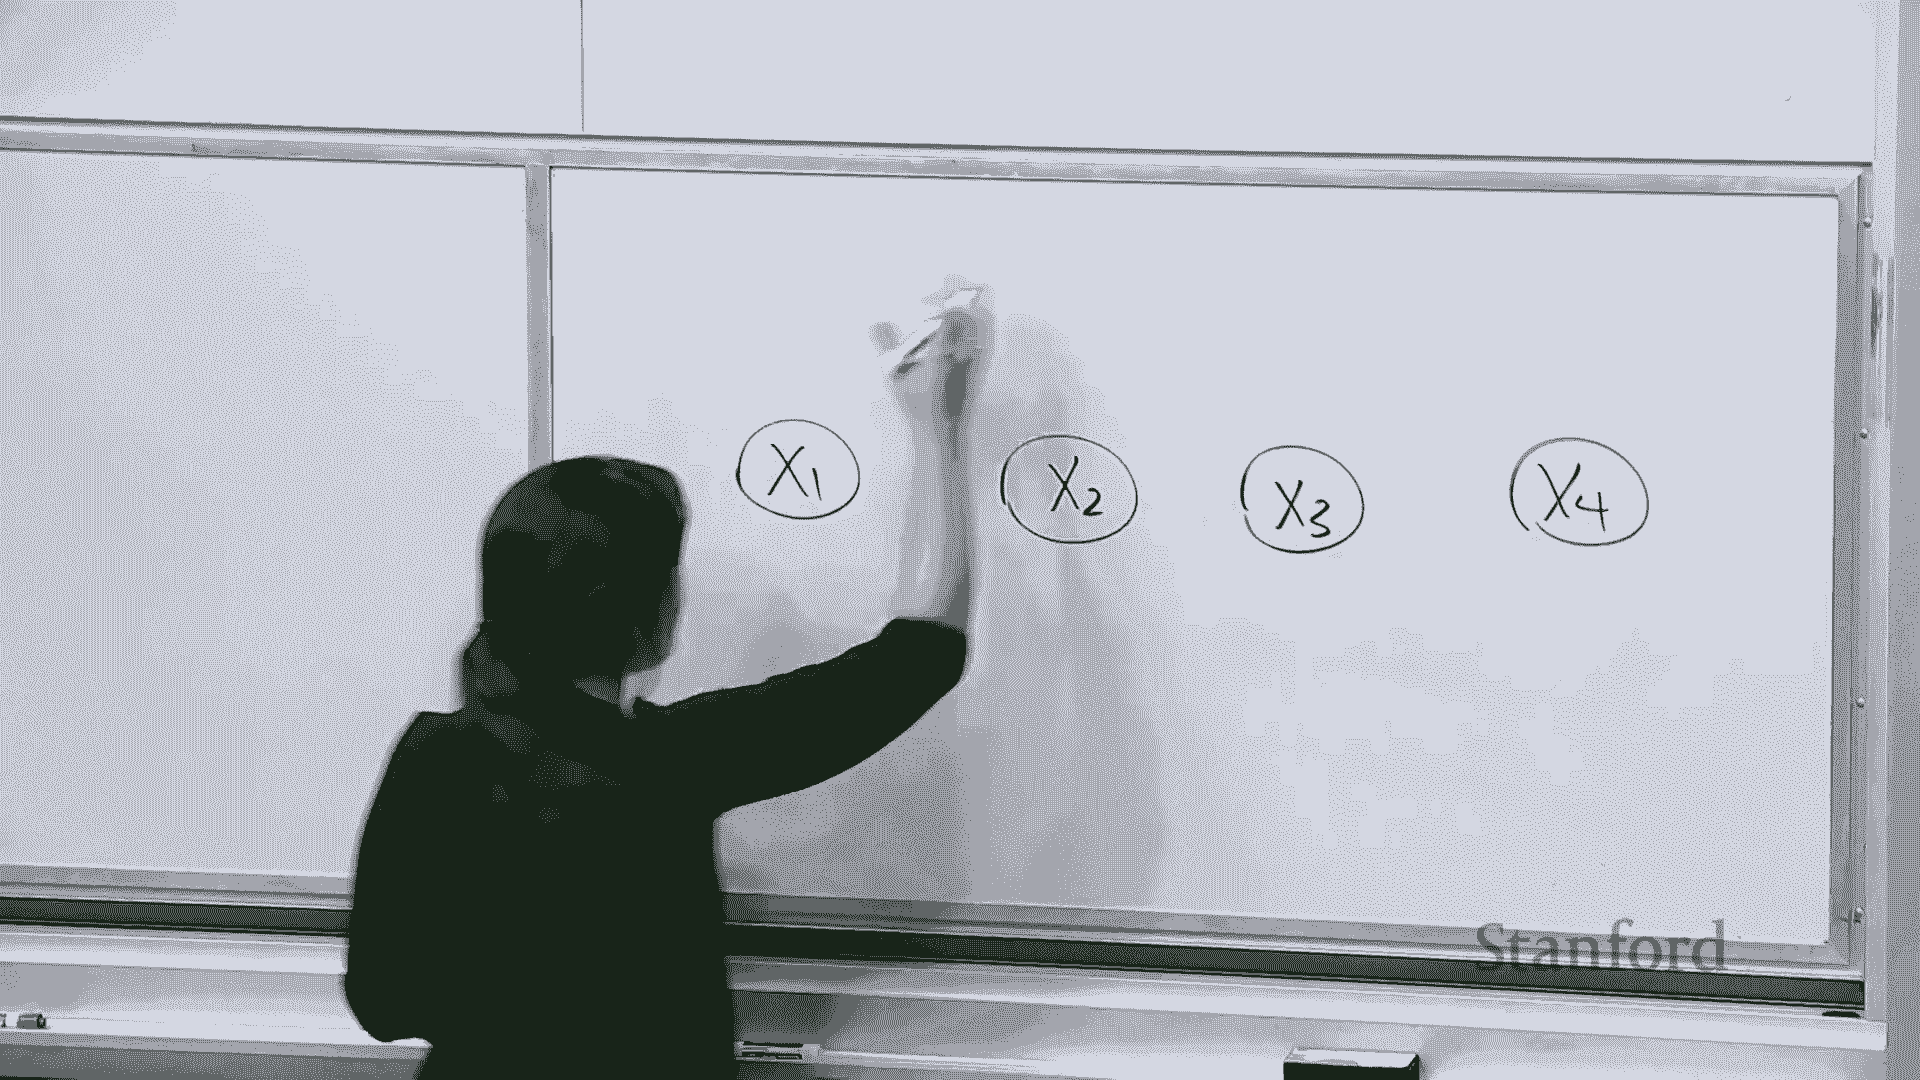 X₁ X₂ X₃ X₄
Stanford